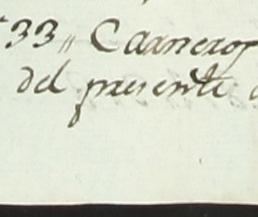 33,, Carneros
del presente